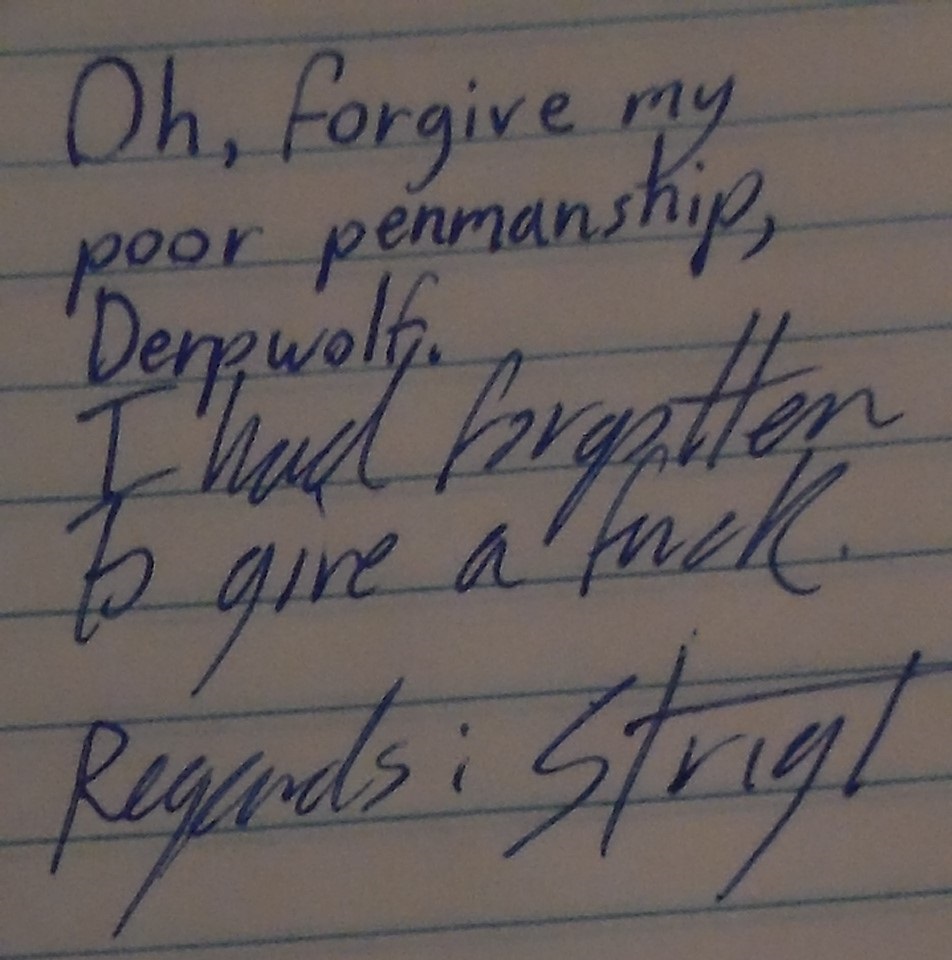 Oh, forgive my
poor penmanship,
Derpwolf.
I had forgotten
to give a fuck.
Regards: Strigl